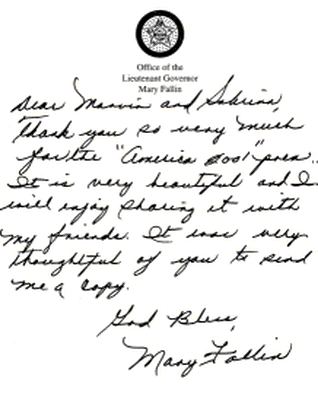 Office of the
Lieutenant Governor
Mary Fallin
Dear Marvin and Sabrina,
Thank you so very much
for the "America 2001" poem.
It is very beautiful and I
will enjoy sharing it with
my friends. It was very
thoughtful of you to send
me a copy.
God Bless,
Mary Fallin